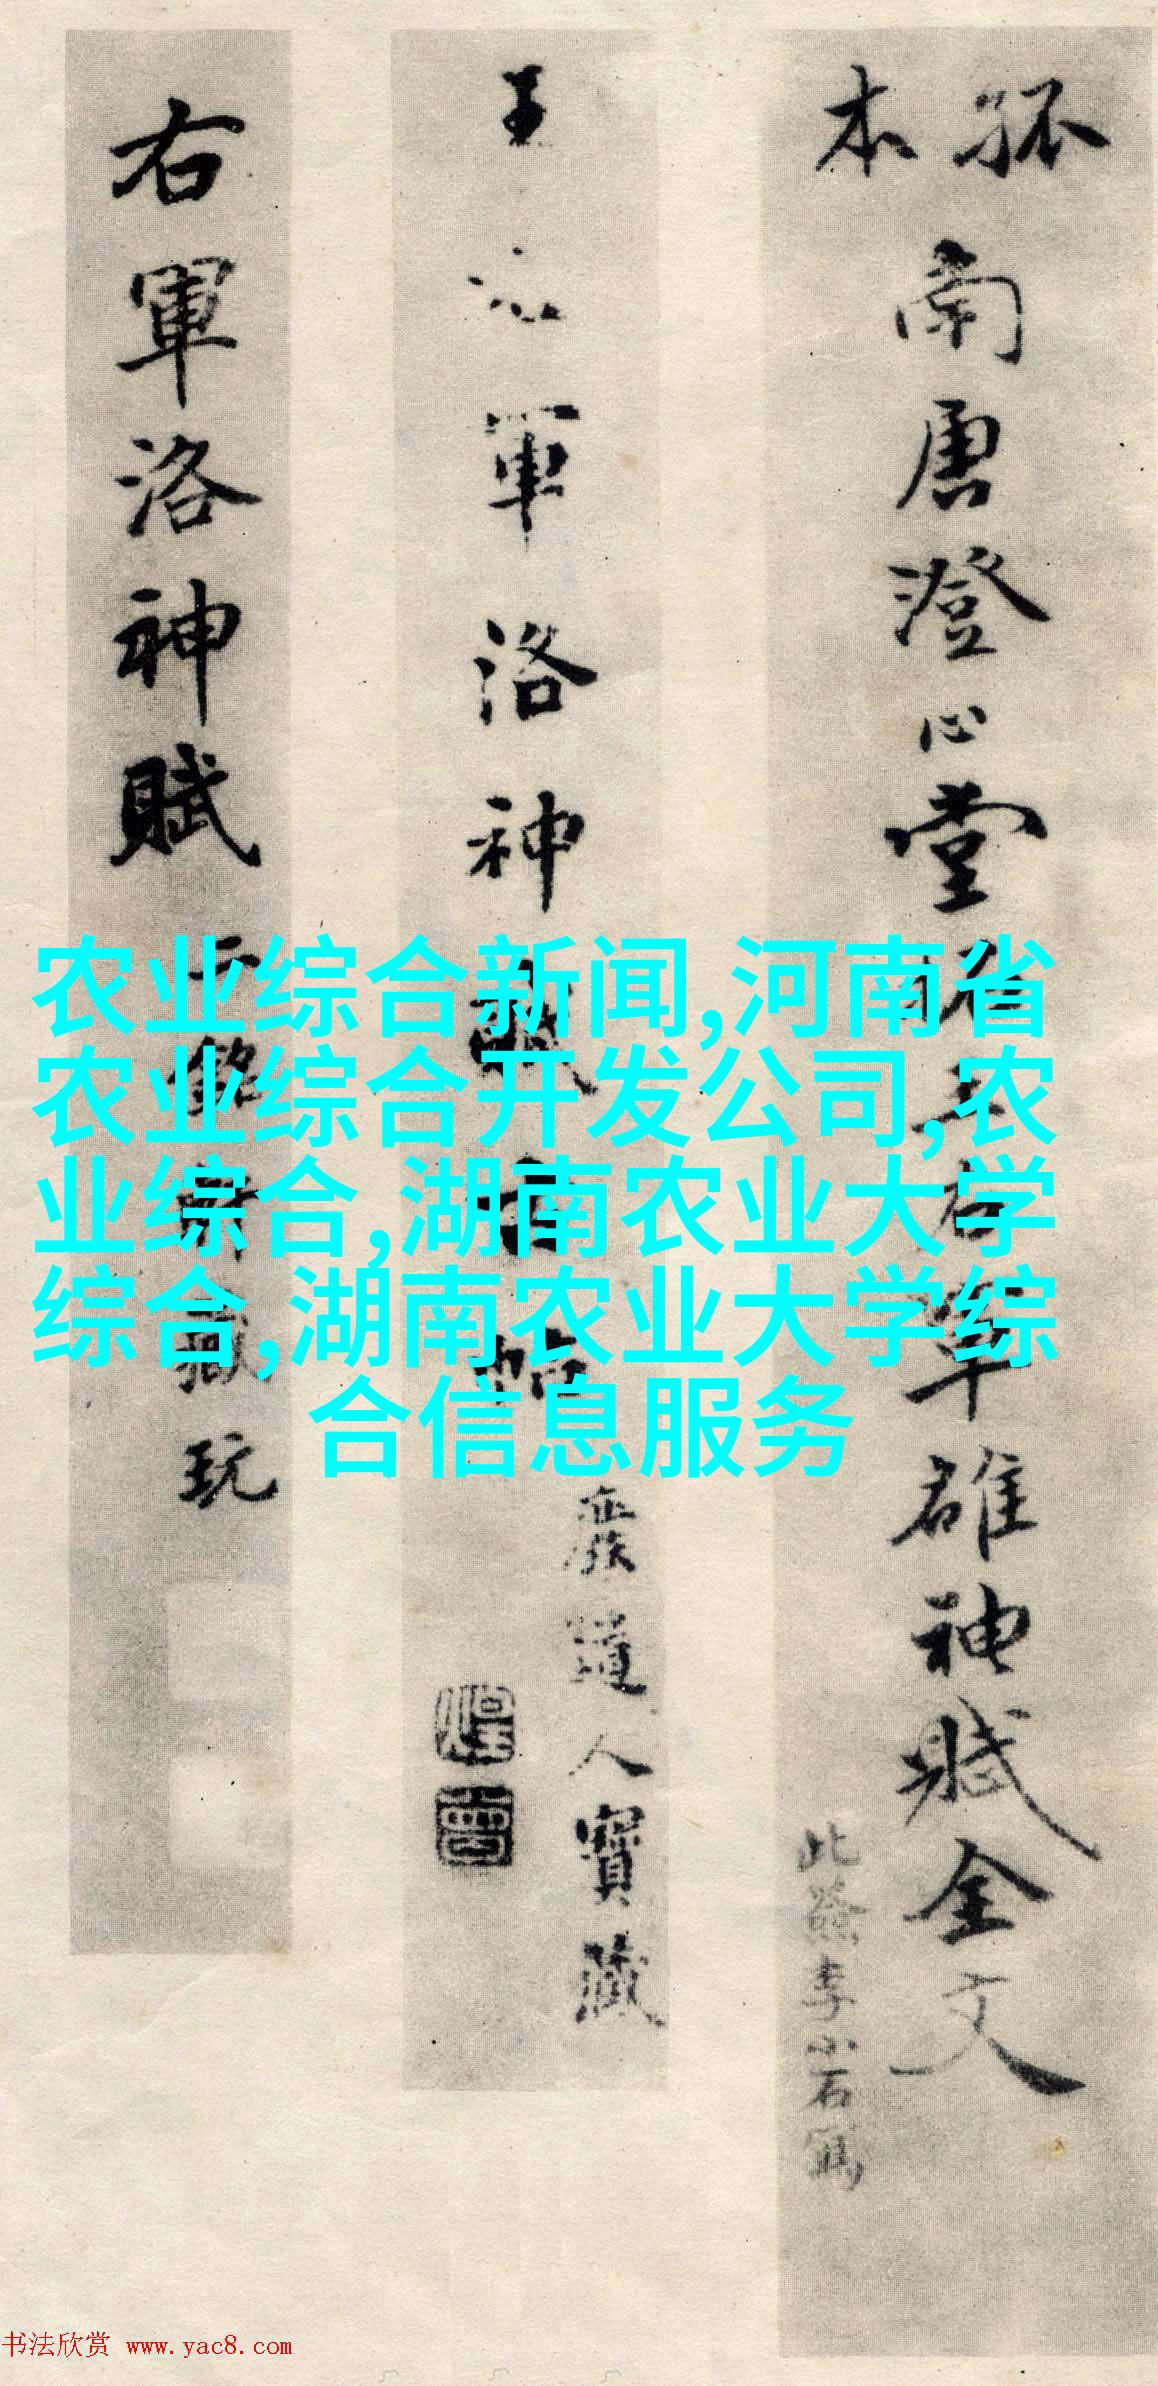 孤本
南唐澄心堂
右軍
雒神賦全文
此签李小石寫
王
軍洛神
道人寶藏
右軍洛神賦
玩
农业综合新闻,河南省
农业综合开发公司,农
业综合,湖南农业大学
综合,湖南农业大学综
合信息服务
书法欣赏 www.yac8.com